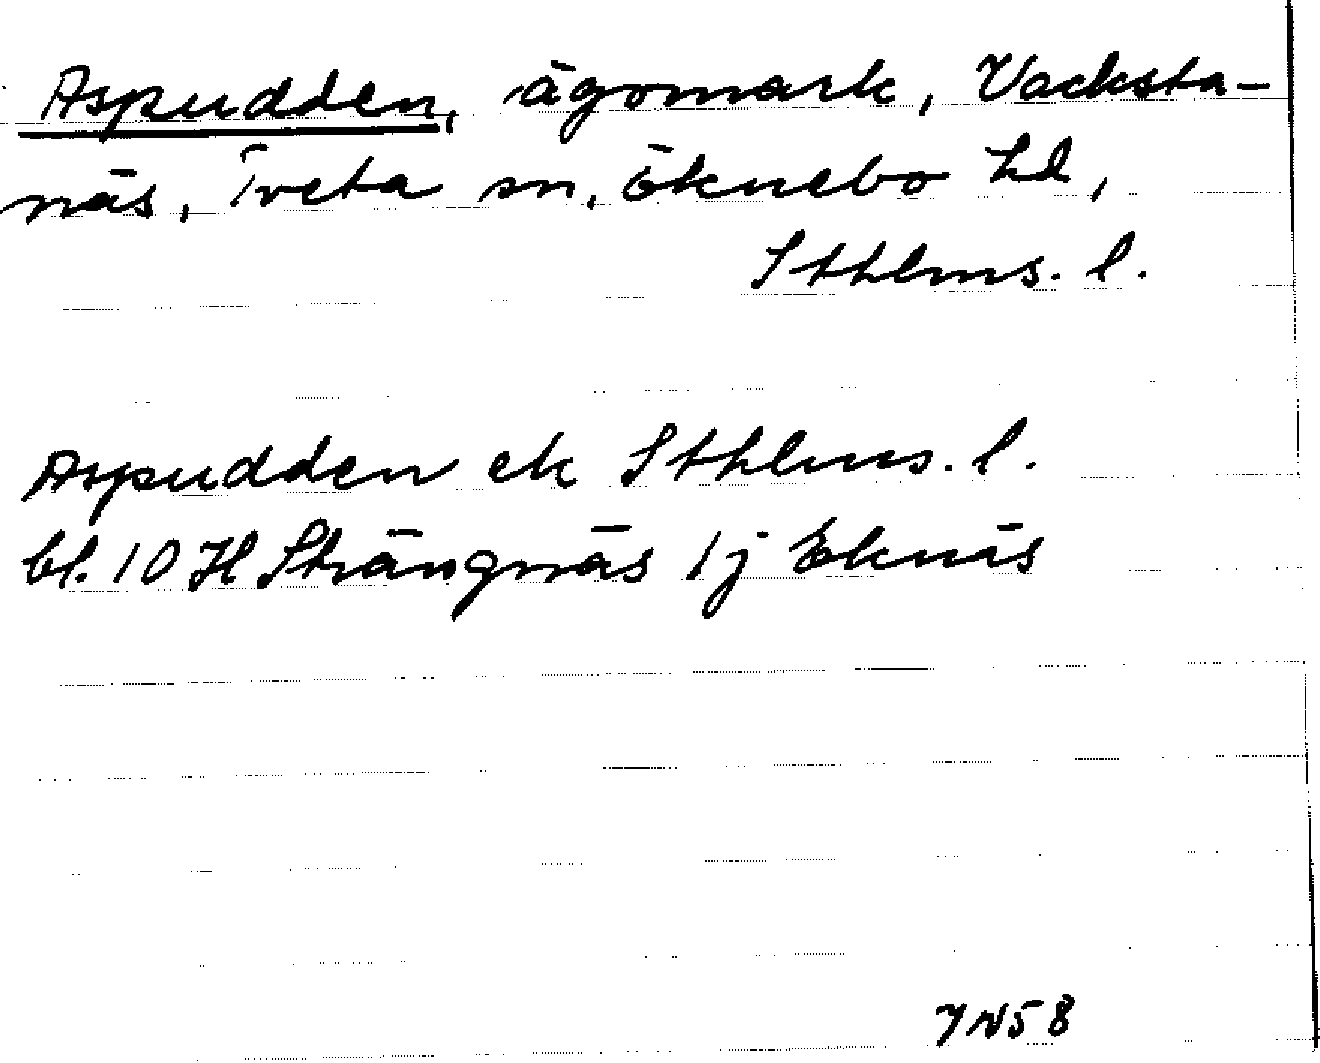 Aspudden, ägomark, Vacksta-
näs, Tveta sn, Öknebo hd,
Sthlms. l.
Aspudden ek Sthlms. l.
bl. 10 H Strängnäs 1j Eknäs
YN58